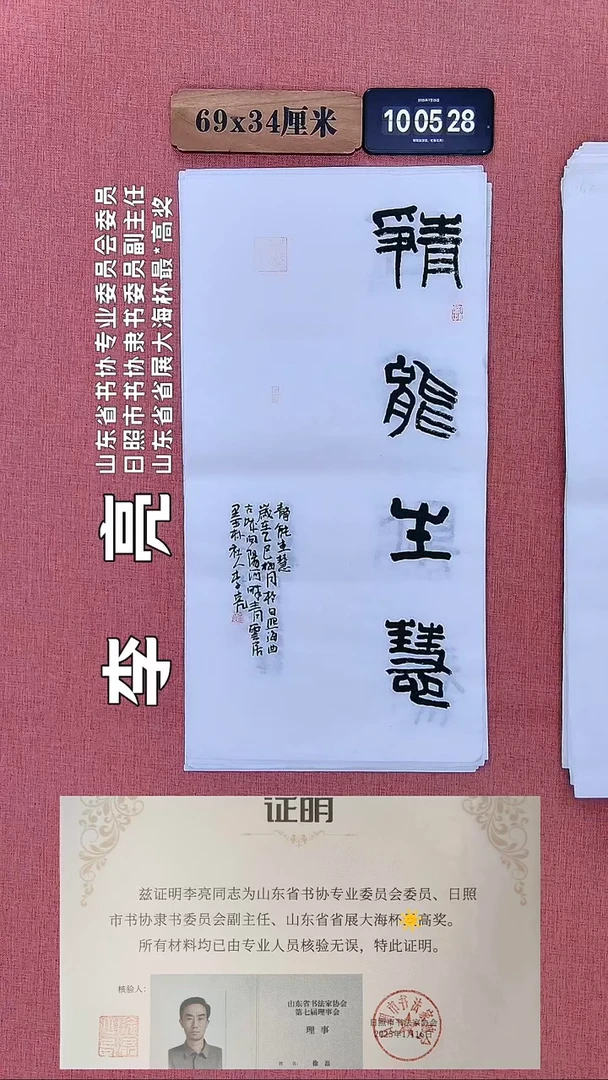 69x34厘米
10 05 28
山东省书协专业委员会委员
日照市书协隶书委员副主任
山东省省展大海杯最*高奖
李亮
静能生慧
静能生慧
岁在乙巳
李亮
证明
兹证明李亮同志为山东省书协专业委员会委员、日照
市书协隶书委员会副主任、山东省省展大海杯最高奖。
所有材料均已由专业人员核验无误，特此证明。
核验人：
山东省书法家协会
第七届理事会
理事
徐磊
日照市书法家协会
2025年1月16日